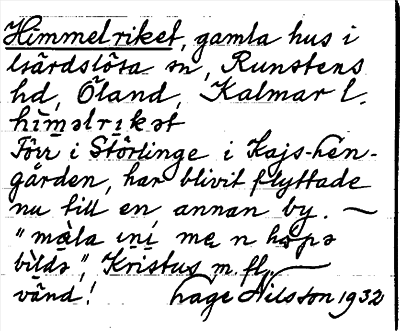 Himmelriket, gamla hus i
Gärdslösa sn, Runstens
hd, Öland, Kalmar l.
himəlrikət
Förr i Störlinge i Kajs-hen-
gården, har blivit flyttade
nu till en annan by. —
"måla ini me n hopə
bildə", Kristus m. fl. —
vänd! Hage Nilsson 1932